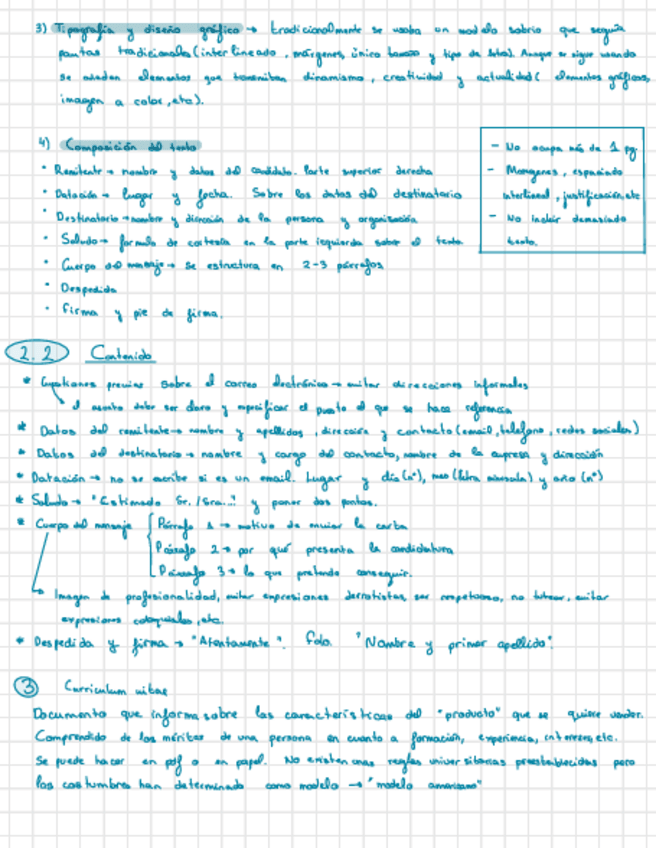 3) Tipografía y diseño gráfico → tradicionalmente se usaba un modelo sobrio que seguía
pautas tradicionales (interlineado, márgenes, único tamaño y tipo de letra). Aunque se sigue usando
se añaden elementos que transmiten dinamismo, creatividad y actualidad (elementos gráficos,
imagen a color, etc).
4) Composición del texto
· Remitente → nombre y datos del candidato. Parte superior derecha
· Datación → lugar y fecha. Sobre los datos del destinatario
· Destinatario → nombre y dirección de la persona y organización
· Saludo → formula de cortesía en la parte izquierda sobre el texto
· Cuerpo del mensaje → se estructura en 2-3 párrafos
· Despedida
· Firma y pie de firma.
- No ocupa más de 1 pg.
- Márgenes, espaciado
interlineal, justificación, etc
- No incluir demasiado
texto.
2.2 Contenido
* previas sobre el correo electrónico → evitar direcciones informales
↳ el asunto debe ser claro y especificar el puesto al que se hace referencia
* Datos del remitente → nombre y apellidos, dirección y contacto (email, teléfono, redes sociales)
* Datos del destinatario → nombre y cargo del contacto, nombre de la empresa y dirección
* Datación → no se escribe si es un email. Lugar y día (nº), mes (letra minúscula) y año (nº)
* Saludo → "Estimado Sr./Sra..." y poner dos puntos.
* Cuerpo del mensaje { Párrafo 1 → motivo de enviar la carta
Párrafo 2 → por qué presenta la candidatura
Párrafo 3 → lo que pretende conseguir.
↳ Imagen de profesionalidad, evitar expresiones derrotistas, ser respetuoso, no tutear, evitar
expresiones coloquiales, etc.
* Despedida y firma → "Atentamente". Fdo. "Nombre y primer apellido".
3 Curriculum vitae
Documento que informa sobre las características del "producto" que se quiere vender.
Comprendido de los méritos de una persona en cuanto a formación, experiencia, intereses, etc.
Se puede hacer en pdf o en papel. No existen unas reglas universitarias preestablecidas pero
las costumbres han determinado como modelo → "modelo americano"